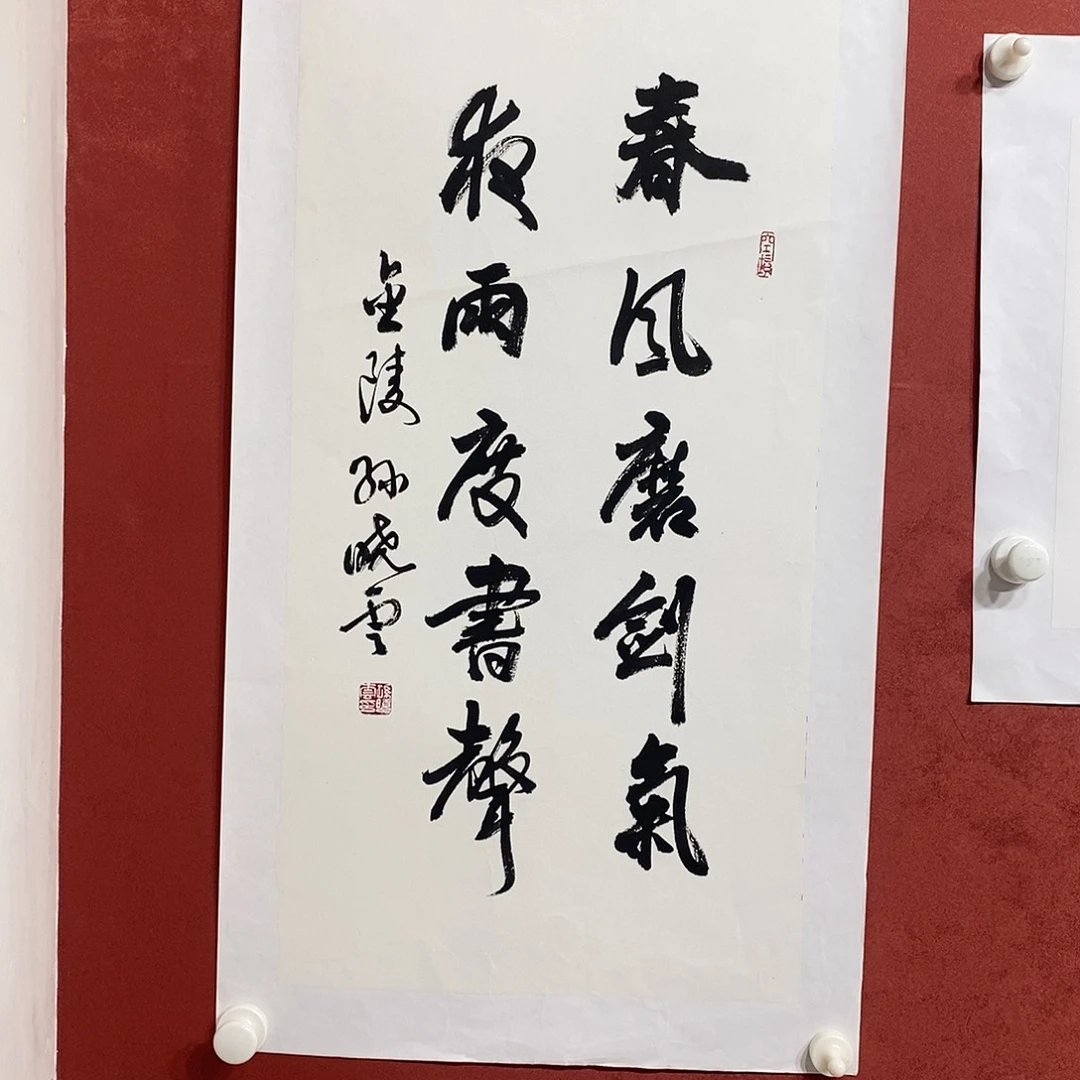 春风磨劍氣
夜雨度書聲
金陵孙晓雲